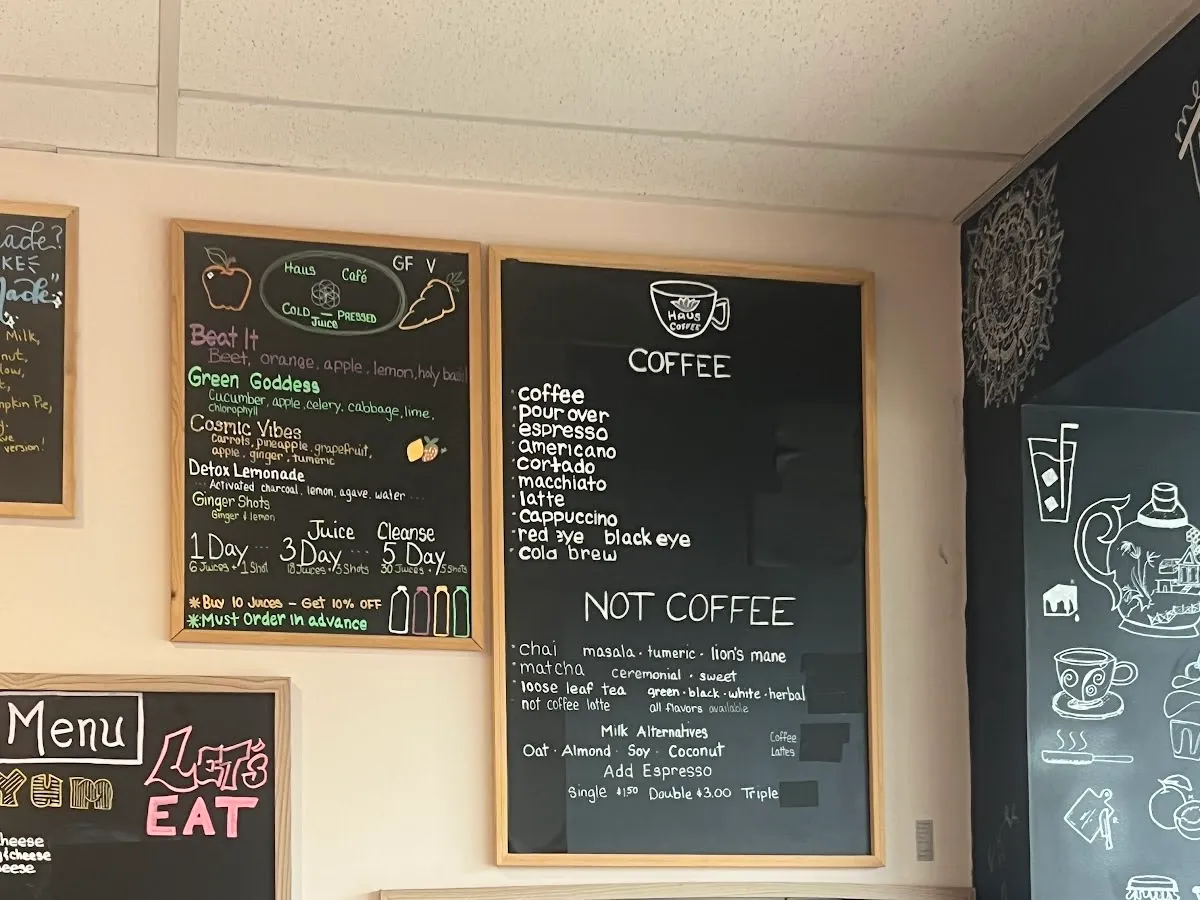 ade?
KE
ade"
Milk,
nut,
low,
t,
mpkin Pie,
version!
GF V
Haus Café
COLD PRESSED
Juice
Beat It
Beet, orange, apple, lemon, holy
Green Goddess
Cucumber, apple, celery, cabbage, lime,
chlorophyll
Cosmic Vibes
Carrots, pineapple, grapefruit,
apple, ginger, tumeric
Detox Lemonade
Activated charcoal, lemon, agave, water
Ginger Shots
Ginger & lemon
Juice Cleanse
1 Day ... 3 Day ... 5 Day
6 Juices + 1 Shot 18 Juices + 3 Shots 30 Juices + 5 Shots
*Buy 10 Juices - Get 10% OFF
*Must Order in advance
HAUS
COFFEE
COFFEE
· coffee
· pour over
· espresso
· americano
· cortado
· macchiato
· latte
· cappuccino
· red eye black eye
· cold brew
NOT COFFEE
· chai masala · tumeric · lion's mane
· matcha ceremonial · sweet
· loose leaf tea green · black · white · herbal
not coffee latte all flavors available
Milk Alternatives
Oat · Almond · Soy · Coconut
Coffee
Lattes
Add Espresso
Single $1.50 Double $3.00 Triple
Menu
YUM
LET'S
EAT
heese
cheese
eese